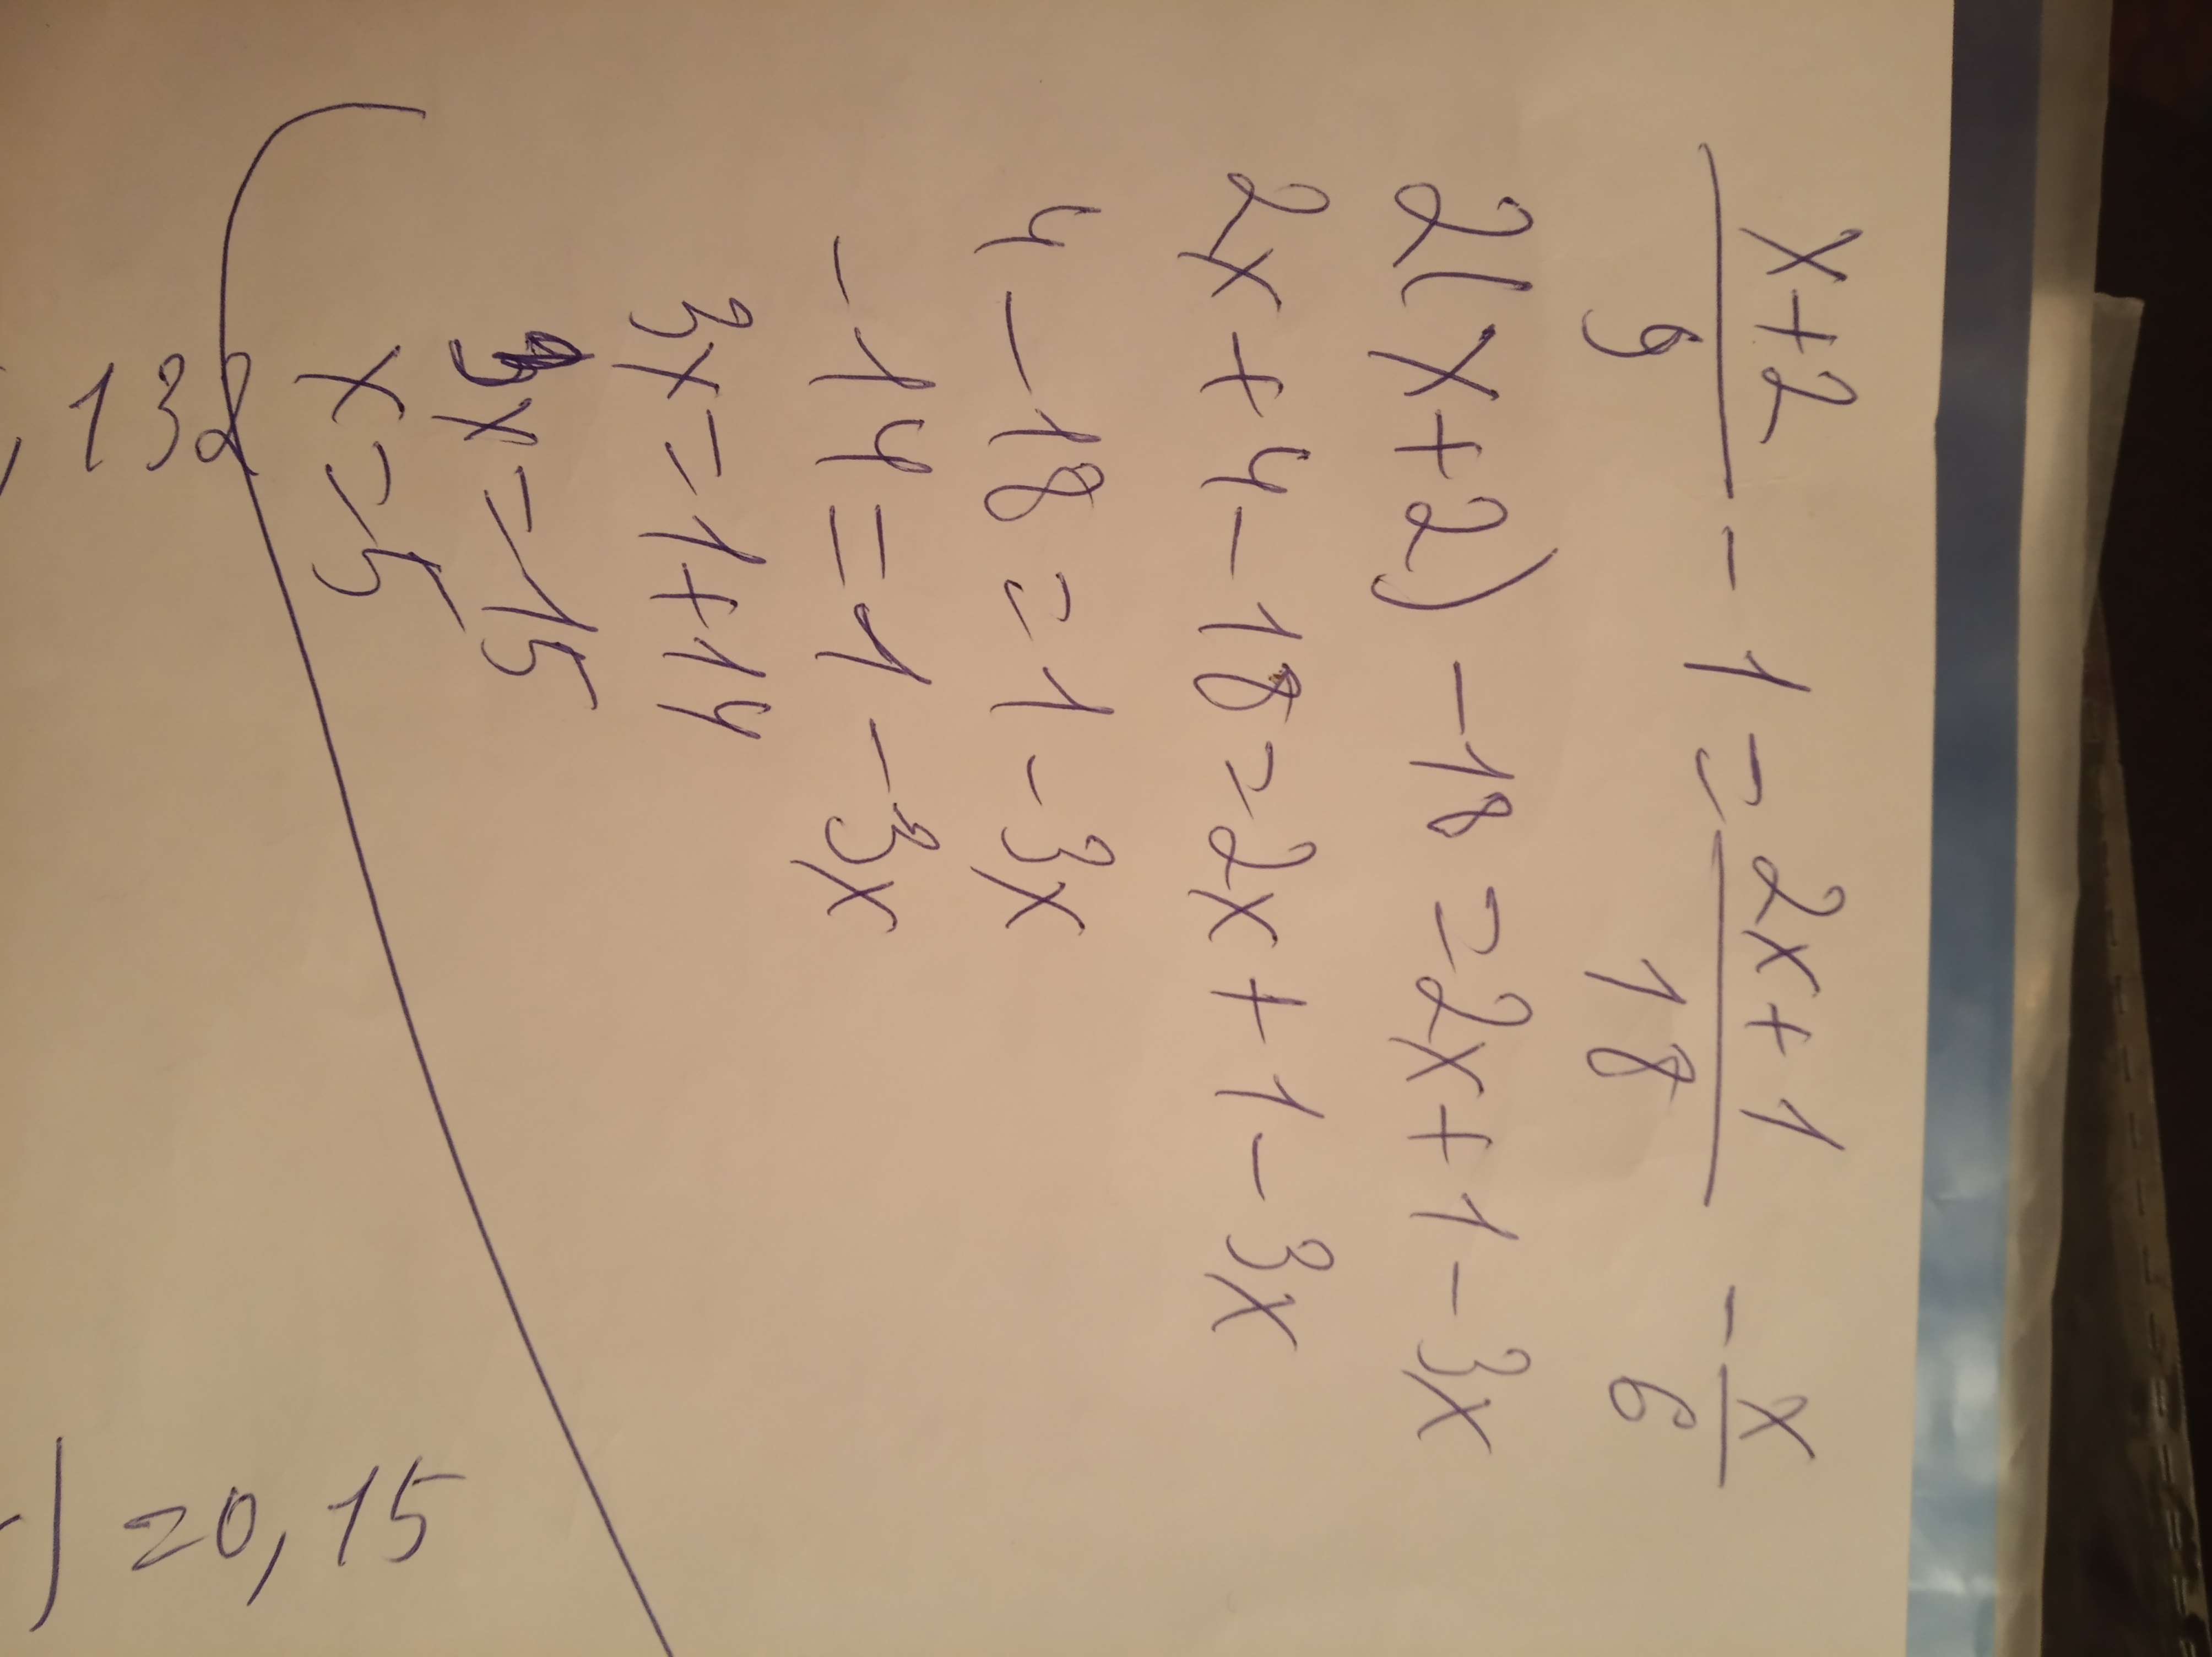 x+2/9 - 1 = 2x+1/18 - x/6
2(x+2) - 18 = 2x+1-3x
2x+4-18=2x+1-3x
4-18=1-3x
-14=1-3x
3x=1+14
3x=15
x=5
,138
) =0,15